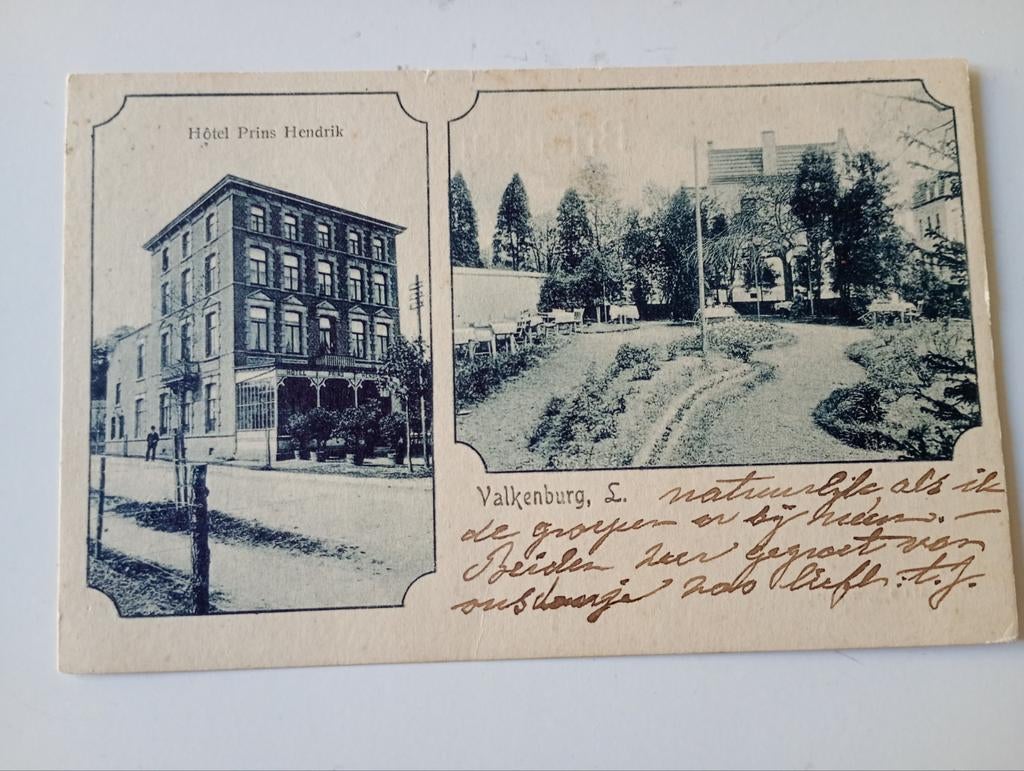 Hôtel Prins Hendrik
HOTEL
Valkenburg, L.
natuurlijk, als ik
de groepen er bij neem. —
Beiden zeer gegroet van
ons
liefh. t.j.